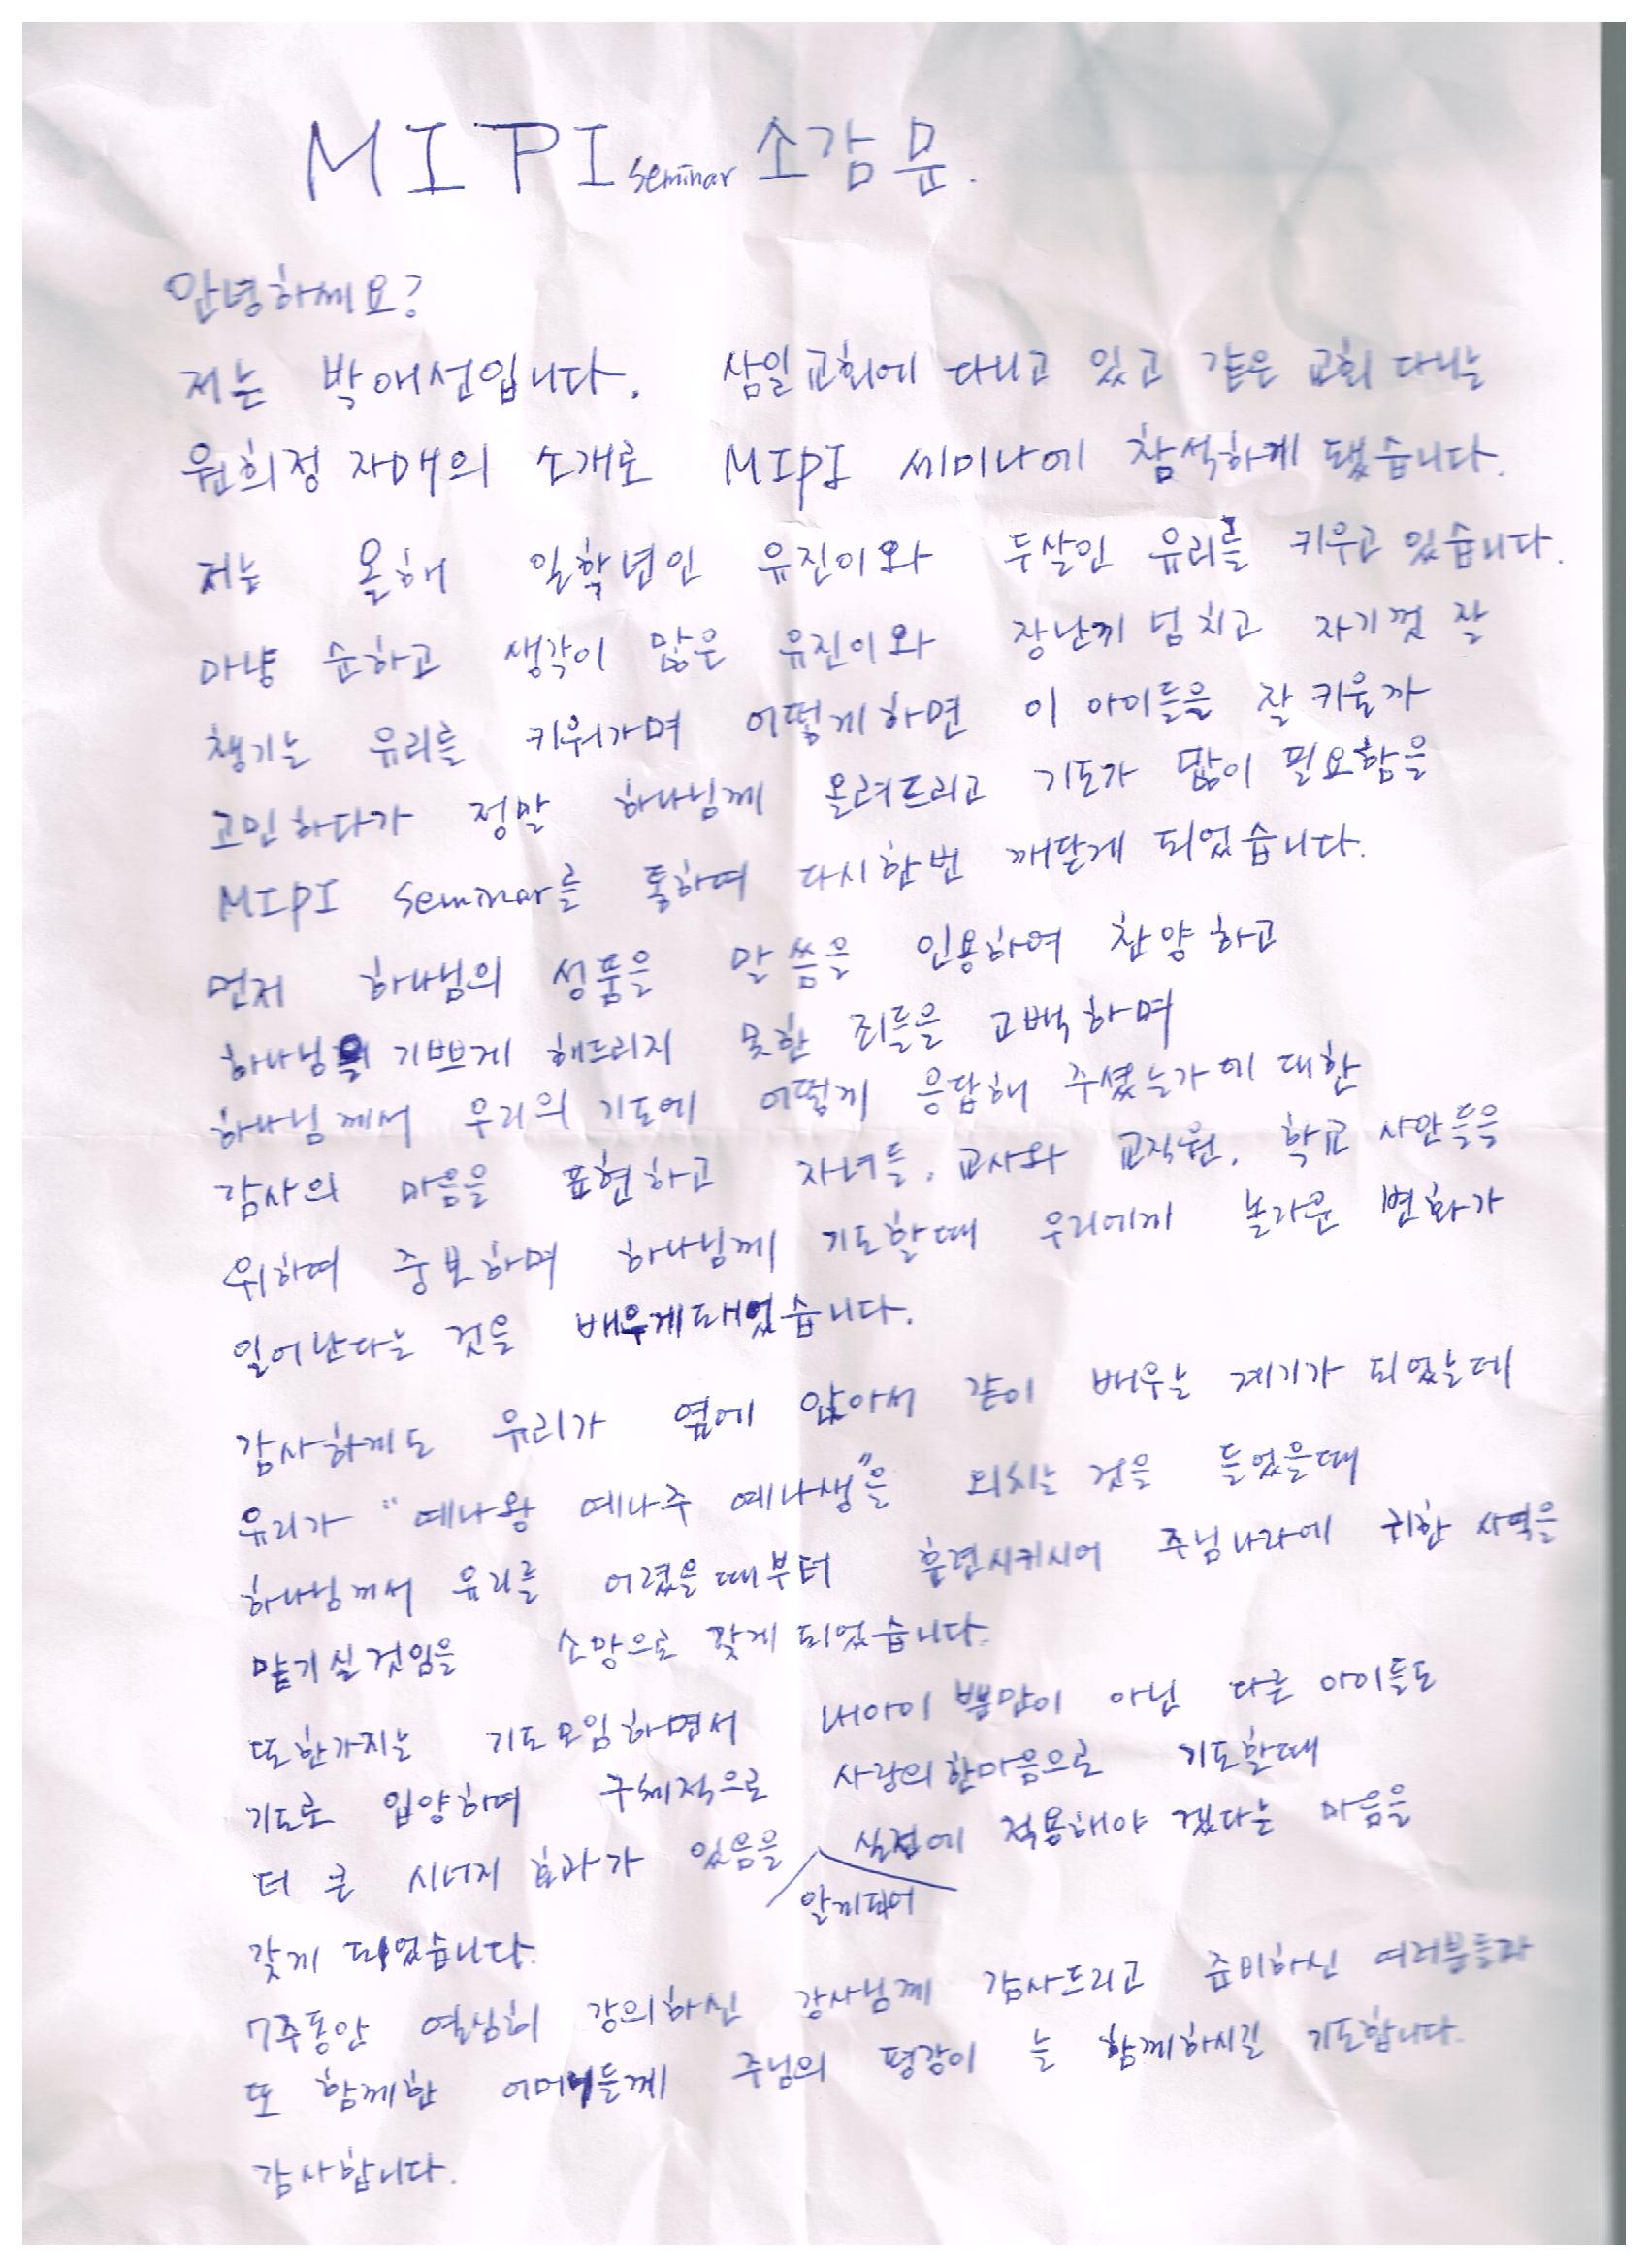 MIPI seminar 소감문.
안녕하세요?
저는 박애선입니다. 삼일교회에 다니고 있고 같은 교회 다니는
원희정 자매의 소개로 MIPI 세미나에 참석하게 됐습니다.
저는 올해 일학년인 유진이와 두살인 유리를 키우고 있습니다.
마냥 순하고 생각이 많은 유진이와 장난끼 넘치고 자기껏 잘
챙기는 유리를 키워가며 어떻게하면 이 아이들을 잘 키울까
고민하다가 정말 하나님께 올려드리고 기도가 많이 필요함을
MIPI seminar를 통하여 다시한번 깨닫게 되었습니다.
먼저 하나님의 성품을 말씀을 인용하여 찬양하고
하나님을 기쁘게 해드리지 못한 죄들을 고백하며
하나님께서 우리의 기도에 어떻게 응답해 주셨는가에 대한
감사의 마음을 표현하고 자녀들, 교사와 교직원, 학교 사안들을
위하여 중보하며 하나님께 기도할때 우리에게 놀라운 변화가
일어난다는 것을 배우게되었습니다.
감사하게도 유리가 옆에 앉아서 같이 배우는 계기가 되었는데
유리가 "예나왕 예나주 예나생"을 외치는 것을 들었을때
하나님께서 유리를 어렸을때부터 훈련시키시어 주님나라에 귀한 사역을
맡기실것임을 소망으로 갖게 되었습니다.
또한가지는 기도모임하면서 내아이 뿐만이 아닌 다른 아이들도
기도로 입양하여 구체적으로 사랑의 한마음으로 기도할때
더 큰 시너지 효과가 있음을 실전에 적용해야 겠다는 마음을
알게되어
갖게 되었습니다.
7주동안 열심히 강의하신 강사님께 감사드리고 준비하신 여러분들과
또 함께한 어머니들께 주님의 평강이 늘 함께하시길 기도합니다.
감사합니다.